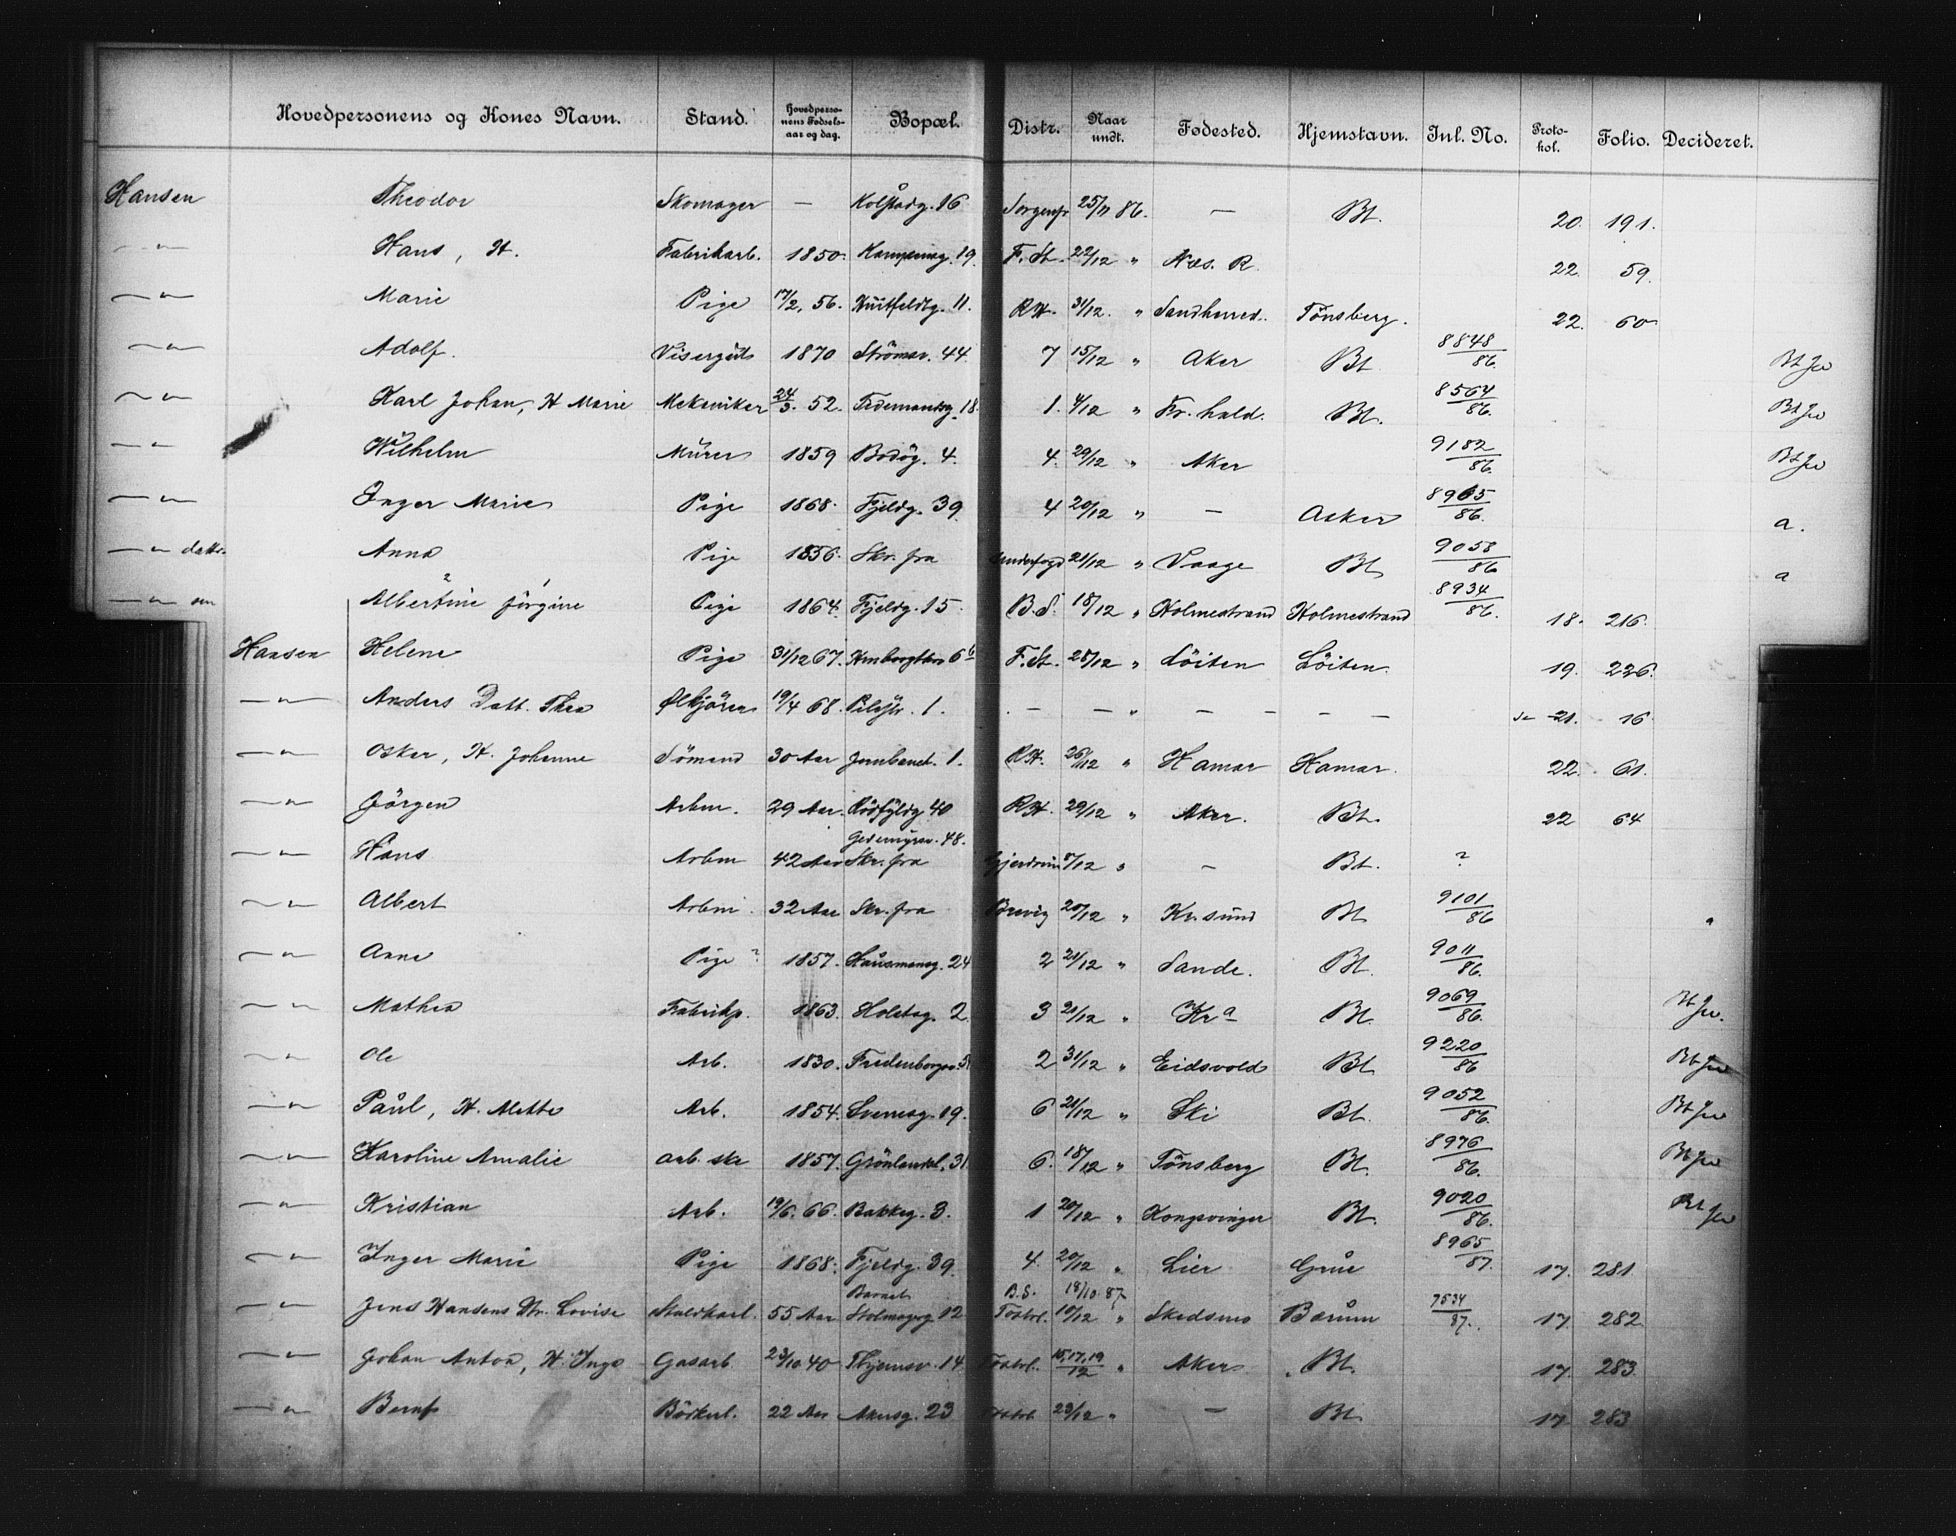 Hovedpersonens og Kones Navn. Stand. Hovedpersonens Fødselsaar og dag. Bopæl. Distr. Naar undt. Fødested. Hjemstavn. Inl. No. Protokol. Folio. Decideret.
Hansen Theodor Skomager — Kolstadg. 16 Sorgenfr 25/11 86. — Bt. 20. 191.
—"— Hans, H. Fabrikarb. 1850. Kampensg. 19. F. St. 22/12 " Næs. R. 22. 59.
—"— Marie Pige 17/2. 56. Huitfeldtg. 11. RH. 31/12. " Sandherred. Tönsberg. 22. 60.
—"— Adolf. Visergut 1870 Strömsv. 44. 7 15/12 " Aker Bt. 8848/86. Bt Jw
—"— Karl Johan, H Marie Mekaniker 24/3. 52. Tidemandsg. 18. 1. 4/12 " Fr. hald. Bt. 8564/86. Bt Jw
—"— Wilhelm Mürer 1859 Bodög. 4. 4. 29/12 " Aker 9182/86. Bt Jw
—"— Inger Marie Pige 1868. Fjeldg. 39. 4 20/12 " — Asker 8965/86. a.
—"— dattr. Anna Pige 1856. Skr. fra 21/12 " Vaage Bt 9058/86 a
—"— Albertine Jörgine Pige 1864. Fjeldg. 15. B.S. 18/12 " Holmestrand Holmestrand 8934/86. 18. 216.
Hansen Helene Pige 31/12 67. 6 b F. St. 28/12 " Löiten Löiten. 19. 226.
—"— Anders Datt. Thea Ølkjörer 19/4 68. Pilestr. 1. — — " — — — — 21. 16.
—"— Oskar, H. Johanne Sömand 30 Aar Jernbanet. 1. RH. 26/12 " Hamar Hamar. 22. 61.
—"— Jörgen Arbm. 29 Aar. Rödfyldg. 40 RH. 29/12 " Aker. Bt. 22 64
Gedemyrsv. 48.
—"— Hans Arbm 42 Aar Skr. fra Gjerdrum 8/12 " — Bt. ?
—"— Albert Arbm. 32 Aar Skr. fra Brevig 20/12 " Kr.sund Bt 9101/86 "
—"— Anne Pige ? 1857. Hausmansg. 24 2 21/12 " Sande. Bt. 9011/86.
—"— Mathea Fabrikp. 1863. Holstsg. 2. 3 21/12 " Kr a Bt. 9069/86. Bt Jw.
—"— Ole Arb. 1830. Fredensborgsv. 5 2 31/12 " Eidsvold Bt 9220/86 Bt Jw
—"— Paul, H. Mette Arb. 1854. Sverresg. 19. 6 21/12 " Ski Bt. 9052/86. Bt Jw
—"— Karoline Amalie arb. ske 1857. Grönlandsl. 31 6. 18/12 " Tönsberg Bt. 8976/86. Bt Jw
—"— Kristian Arb. 19/6. 66. Bakkeg. 3. 1 20/12 " Kongsvinger Bt. 9020/86. Bt Jw
—"— Inger Marie Pige 1868. Fjeldg. 39. 4. 20/12 " Lier Grue 8965/87. 17. 281.
Barnet B.S. 18/10 87.
—"— Jens Hansens Lovise Staldkarl. 55 Aar 12 Toxtel. 10/12 " Skedsmo Bærum 7534/87. 17. 282
—"— Johan Anton, H. Inga Gasarb. 23/10 40 Thjemsv. 14 15,17,19/12 " Aker Bt. 17. 283.
—"— Bernt Bödkerl. 22 Aar Akersg. 23 23/12 " — Bt. 17. 283.